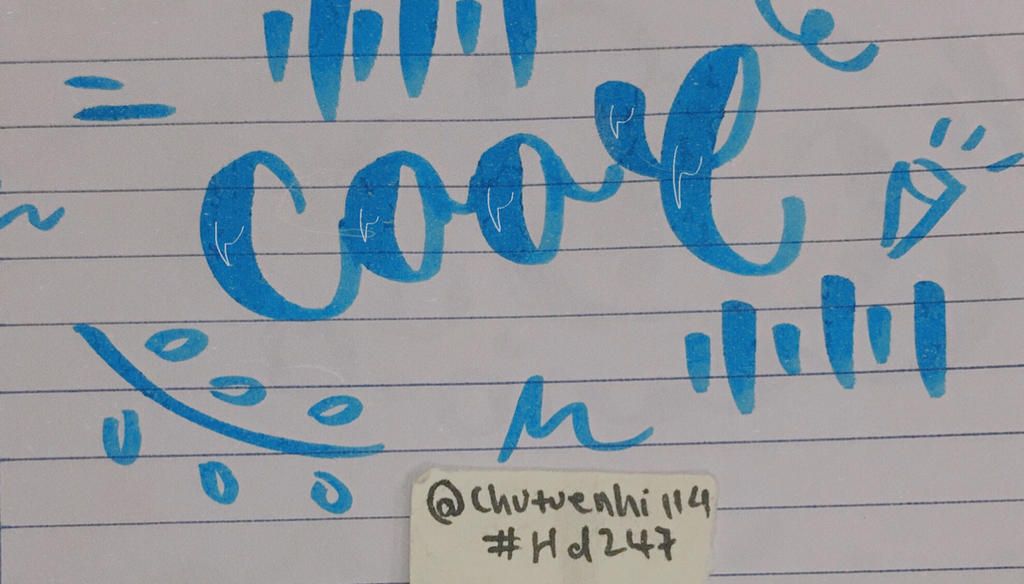 cool
@chutuenhi114
#Hd247